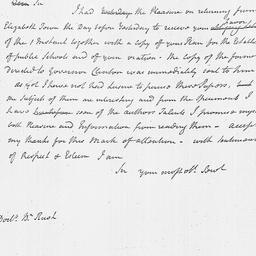 Dear Sir
I had the Pleasure on returning from
Elizabeth Town the Day before Yesterday to receive your favor
of the 1 Instant together with a copy of your Plan for the Establ
of public Schools and of your oration. The copy of the former
Directed to Governor Clinton was immediately sent to him
as yet I have not had Leisure to peruse these Papers,
the Subject of them are interesting and from the Specimens I
have seen of the authors Talents I promise myself
both Pleasure and Information from reading them — accept
my thanks for this Mark of attention — with Sentiments
of Respect & Esteem I am
Sir your most ob. Servt
Doct. Mr Rush